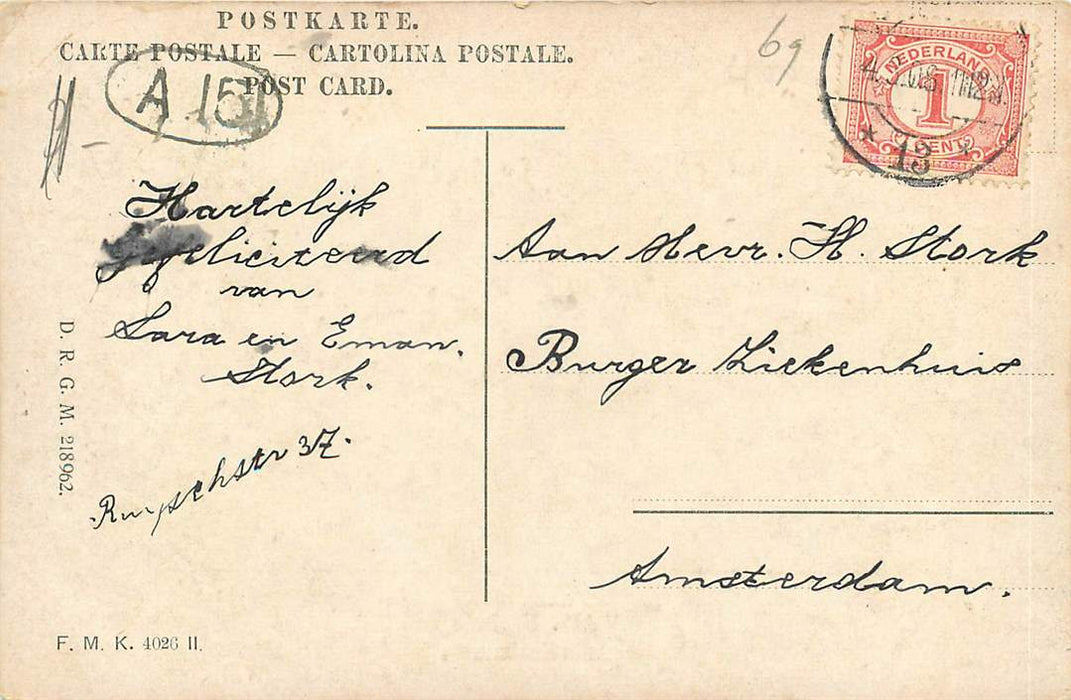 POSTKARTE.
CARTE POSTALE — CARTOLINA POSTALE.
POST CARD.
A 151
69
NEDERLAND
1
CENT
13
Hartelijk
gefeliciteerd
van
Sara en Eman.
Stork.
Ruyschstr 37.
Aan Mevr. H. Stork
Burger Ziekenhuis
Amsterdam.
D. R. G. M. 218962.
F. M. K. 4026 II.